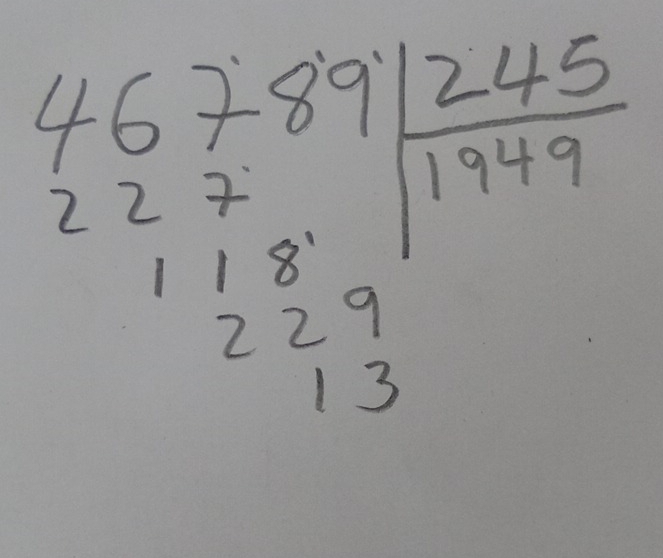 46789 | 245
227 | 1949
118
229
13